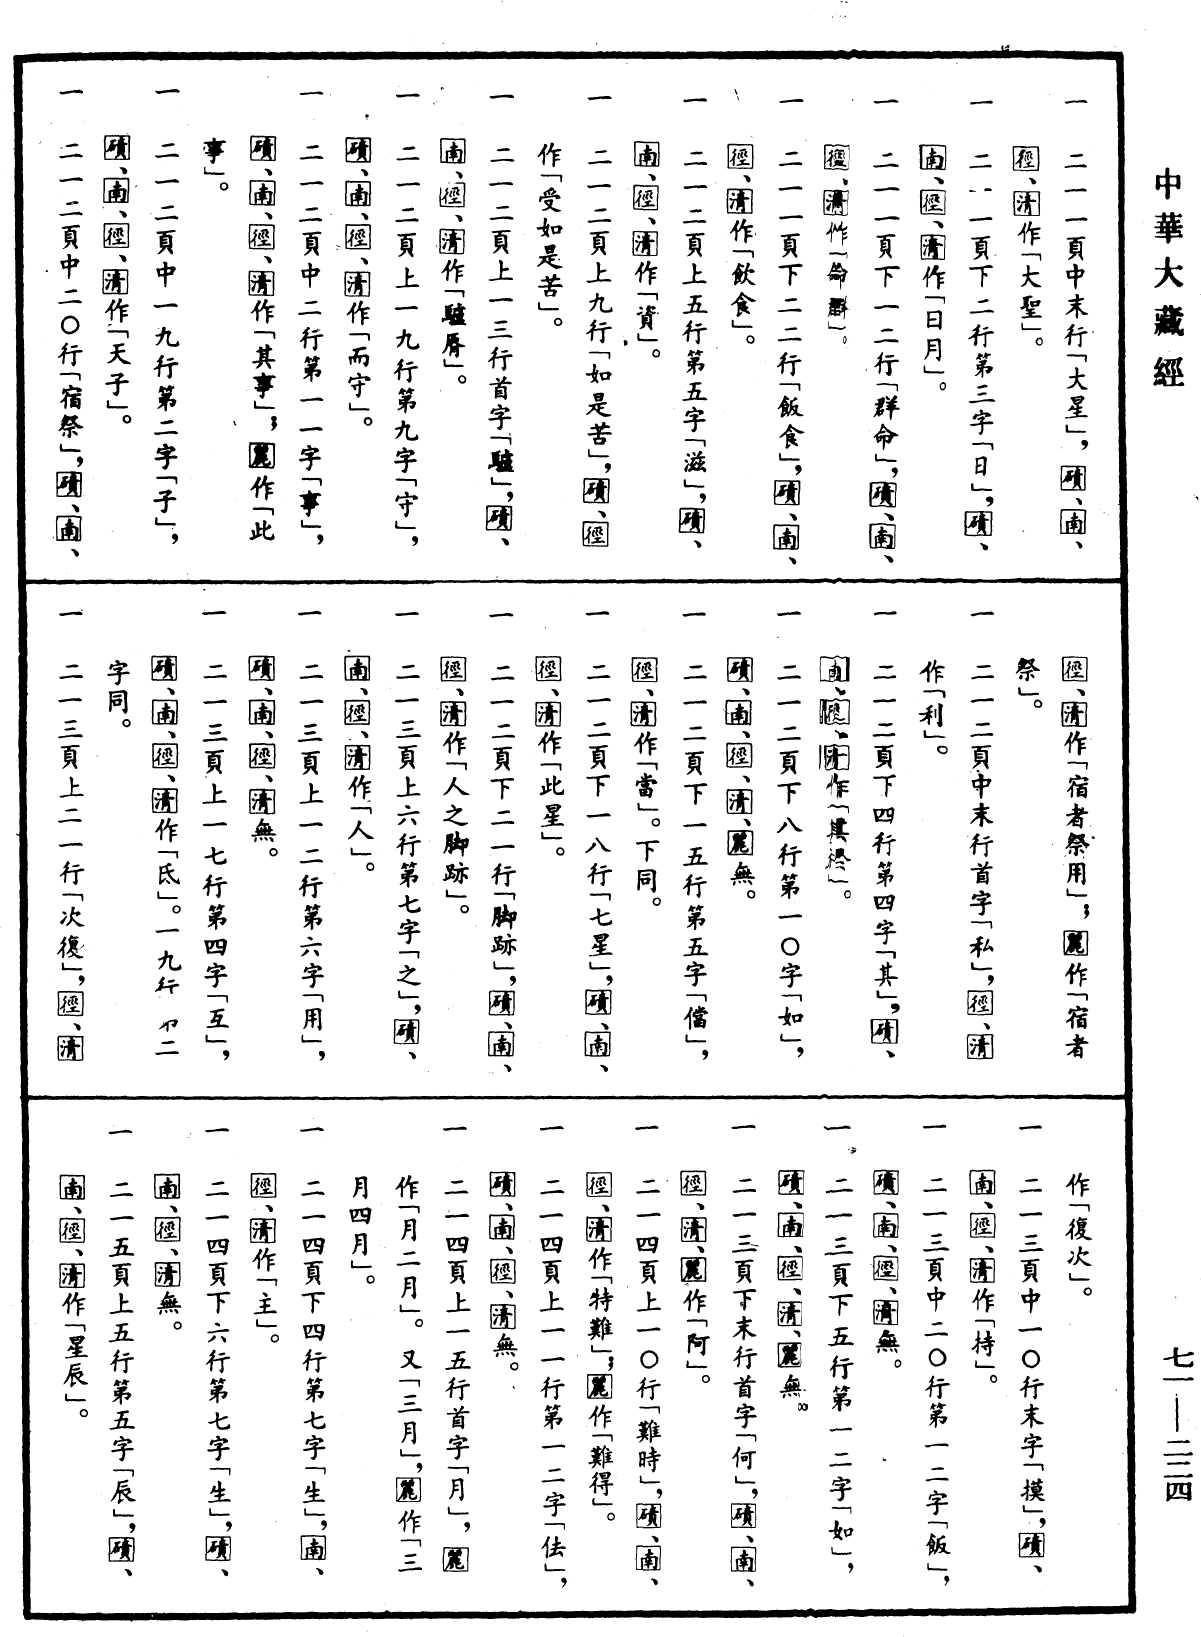 中華大藏經
一 二一一頁中末行「大星」，磧、南、
徑、清作「大聖」。
一 二一一頁下二行第三字「日」，磧、
南、徑、清作「日月」。
一 二一一頁下一二行「群命」，磧、南、
徑、清作「命群」。
一 二一一頁下二二行「飯食」，磧、南、
徑、清作「飲食」。
一 二一二頁上五行第五字「滋」，磧、
南、徑、清作「資」。
一 二一二頁上九行「如是苦」，磧、徑
作「受如是苦」。
一 二一二頁上一三行首字「驢」，磧、
南、徑、清作「驢脣」。
一 二一二頁上一九行第九字「守」，
磧、南、徑、清作「而守」。
一 二一二頁中二行第一一字「事」，
磧、南、徑、清作「其事」；麗作「此
事」。
一 二一二頁中一九行第二字「子」，
磧、南、徑、清作「天子」。
一 二一二頁中二〇行「宿祭」，磧、南、
徑、清作「宿者祭用」；麗作「宿者
祭」。
一 二一二頁中末行首字「私」，徑、清
作「利」。
一 二一二頁下四行第四字「其」，磧、
南、徑、清作「其祭」。
一 二一二頁下八行第一〇字「如」，
磧、南、徑、清、麗無。
一 二一二頁下一五行第五字「儅」，
徑、清作「當」。下同。
一 二一二頁下一八行「七星」，磧、南、
徑、清作「此星」。
一 二一二頁下二一行「脚跡」，磧、南、
徑、清作「人之脚跡」。
一 二一三頁上六行第七字「之」，磧、
南、徑、清作「人」。
一 二一三頁上一二行第六字「用」，
磧、南、徑、清無。
一 二一三頁上一七行第四字「互」，
磧、南、徑、清作「氐」。一九行 二
字同。
一 二一三頁上二一行「次復」，徑、清
作「復次」。
一 二一三頁中一〇行末字「摸」，磧、
南、徑、清作「持」。
一 二一三頁中二〇行第一二字「飯」，
磧、南、徑、清無。
一 二一三頁下五行第一二字「如」，
磧、南、徑、清、麗無。
一 二一三頁下末行首字「何」，磧、南、
徑、清、麗作「阿」。
一 二一四頁上一〇行「難時」，磧、南、
徑、清作「特難」；麗作「難得」。
一 二一四頁上一一行第一二字「佉」，
磧、南、徑、清無。
一 二一四頁上一五行首字「月」，麗
作「月二月」。又「三月」，麗作「三
月四月」。
一 二一四頁下四行第七字「生」，南、
徑、清作「主」。
一 二一四頁下六行第七字「生」，磧、
南、徑、清無。
一 二一五頁上五行第五字「辰」，磧、
南、徑、清作「星辰」。
七一——二二四